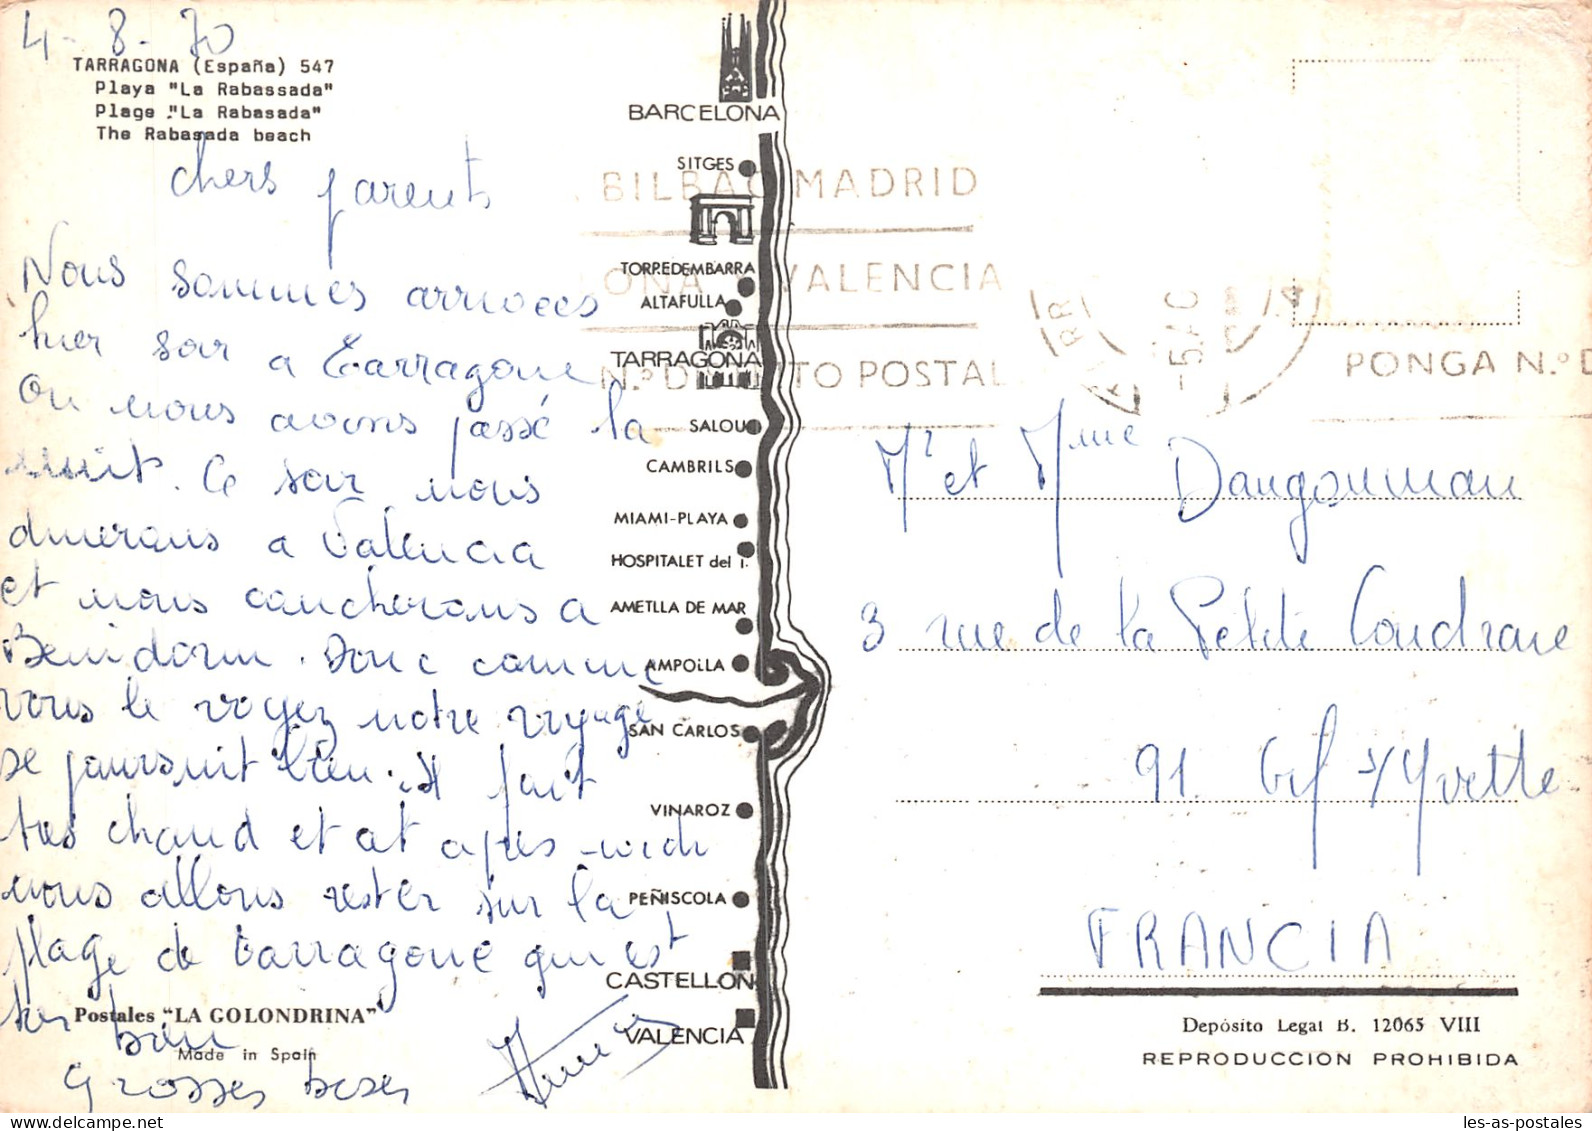 4-8-70
TARRAGONA (España) 547
Playa "La Rabassada"
Plage "La Rabasada"
The Rabasada beach
chers parents
Nous sommes arrivées
hier soir a Tarragone
ou nous avons passé la
nuit. Ce soir nous
dinerons a Valencia
et nous coucherons a
Benidorm. Donc comme
vous le voyez notre voyage
se poursuit bien. Il fait
tres chaud et cet apres-midi
nous allons rester sur la
plage de Tarragone qui est
tres bien
Grosses bises
Postales "LA GOLONDRINA"
Made in Spain
BARCELONA
SITGES
TORREDEMBARRA
ALTAFULLA
TARRAGONA
SALOU
CAMBRILS
MIAMI-PLAYA
HOSPITALET del I.
AMETLLA DE MAR
AMPOLLA
SAN CARLOS
VINAROZ
PEÑISCOLA
CASTELLON
VALENCIA
BILBAO MADRID
ONA Y VALENCIA
N.º DISTRITO POSTAL
-5.AG
PONGA N.º D
Mr et Mme Daugouman
3 rue de la Petite Coudraie
91. Gif s/Yvette
FRANCIA
Depósito Legal B. 12065 VIII
REPRODUCCION PROHIBIDA
les-as-postales